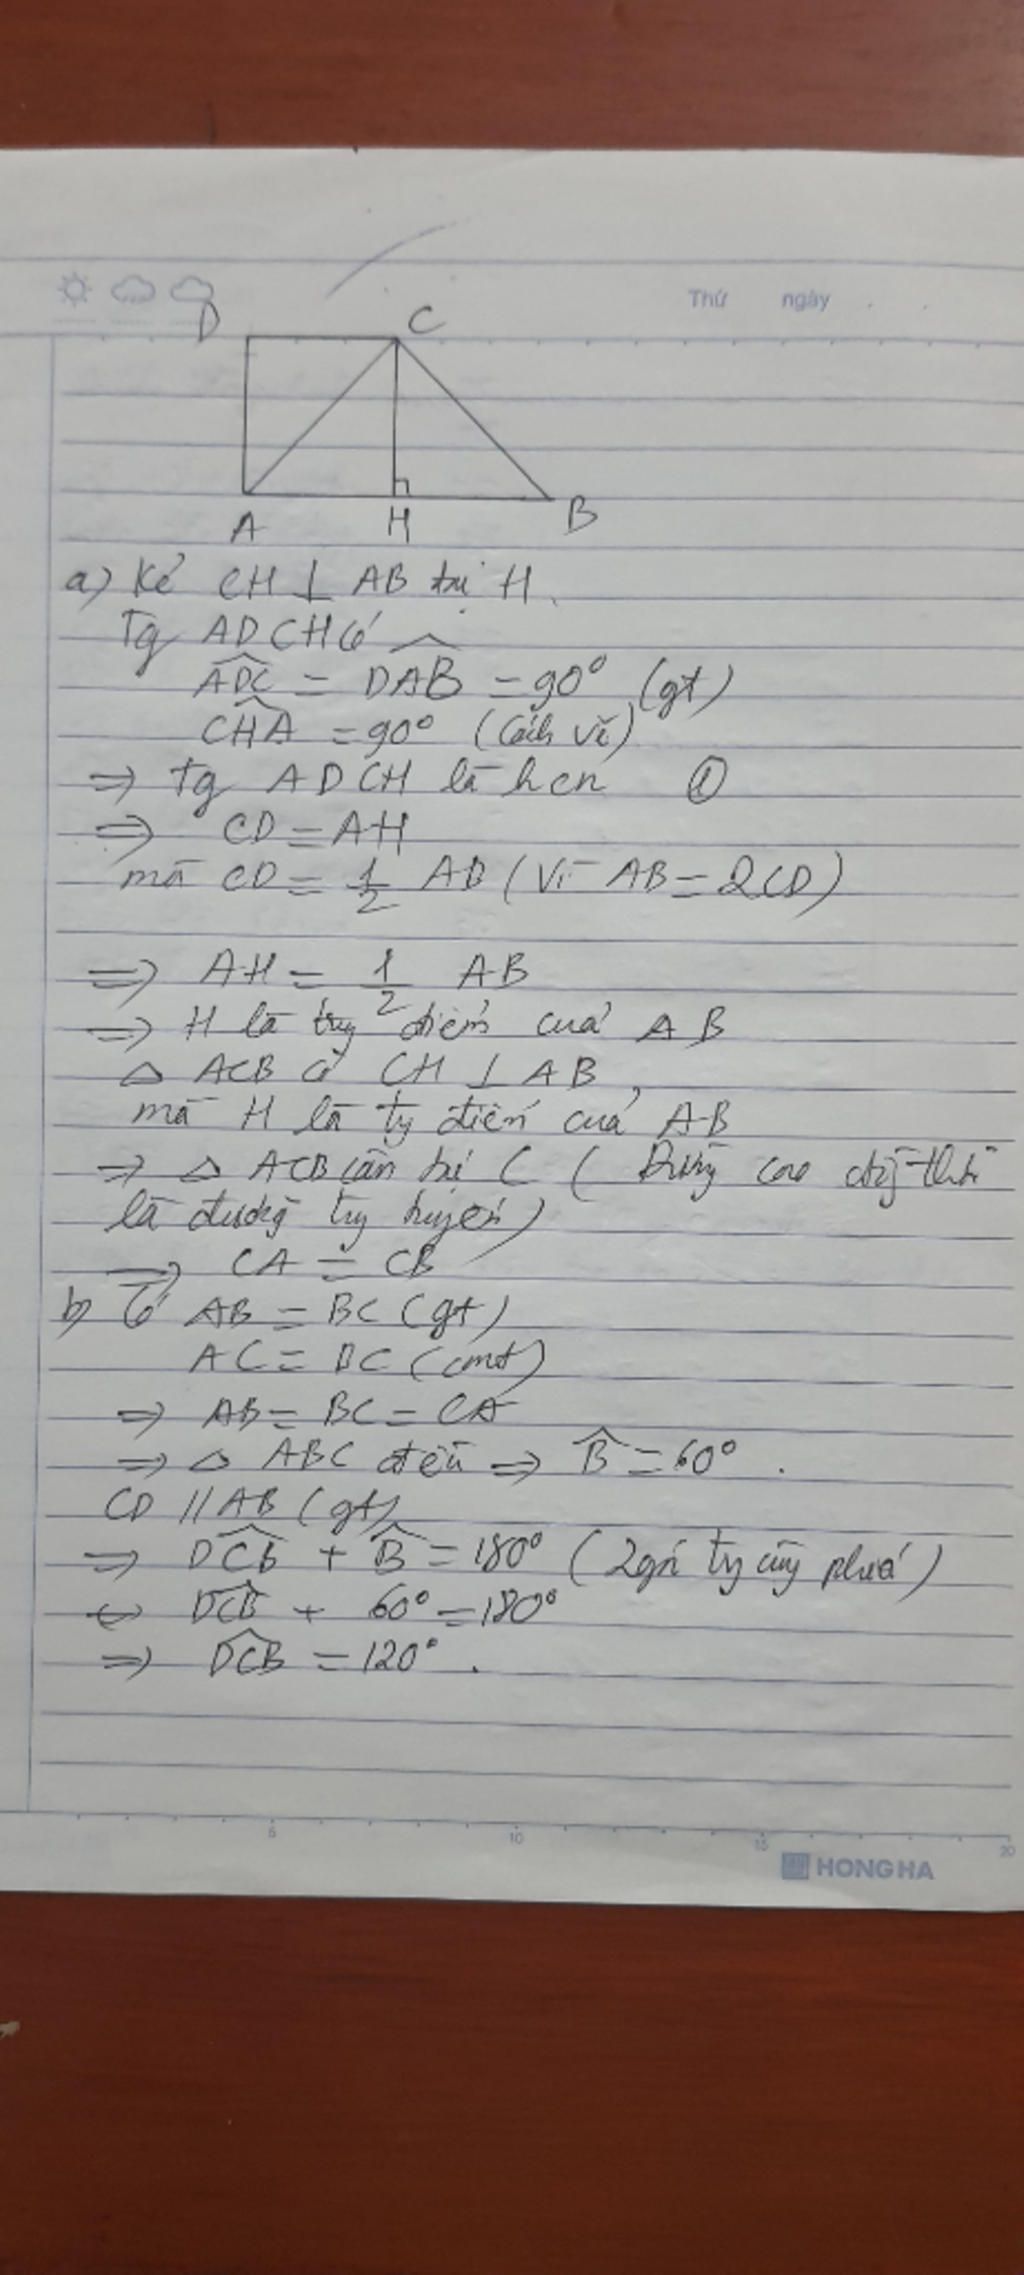 Thứ ngày
D C
A H B
a) Kẻ CH ⊥ AB tại H.
Tg ADCH có
ADC = DAB = 90° (gt)
CHA = 90° (cách vẽ)
=> Tg ADCH là hcn ①
=> CD = AH
mà CD = 1/2 AB (Vì AB = 2CD)
=> AH = 1/2 AB
=> H là trg điểm của AB
△ ACB có CH ⊥ AB,
mà H là tg điểm của AB
=> △ ACB cân tại C (Đường cao đồg thời
là đường trg tuyến)
=> CA = CB
b) Có AB = BC (gt)
AC = BC (cmt)
=> AB = BC = CA
=> △ ABC đều => B = 60°.
CD // AB (gt)
=> DCB + B = 180° (2 góc tg cùg phía)
<=> DCB + 60° = 180°
=> DCB = 120°.
5 10 15 20
HONG HA